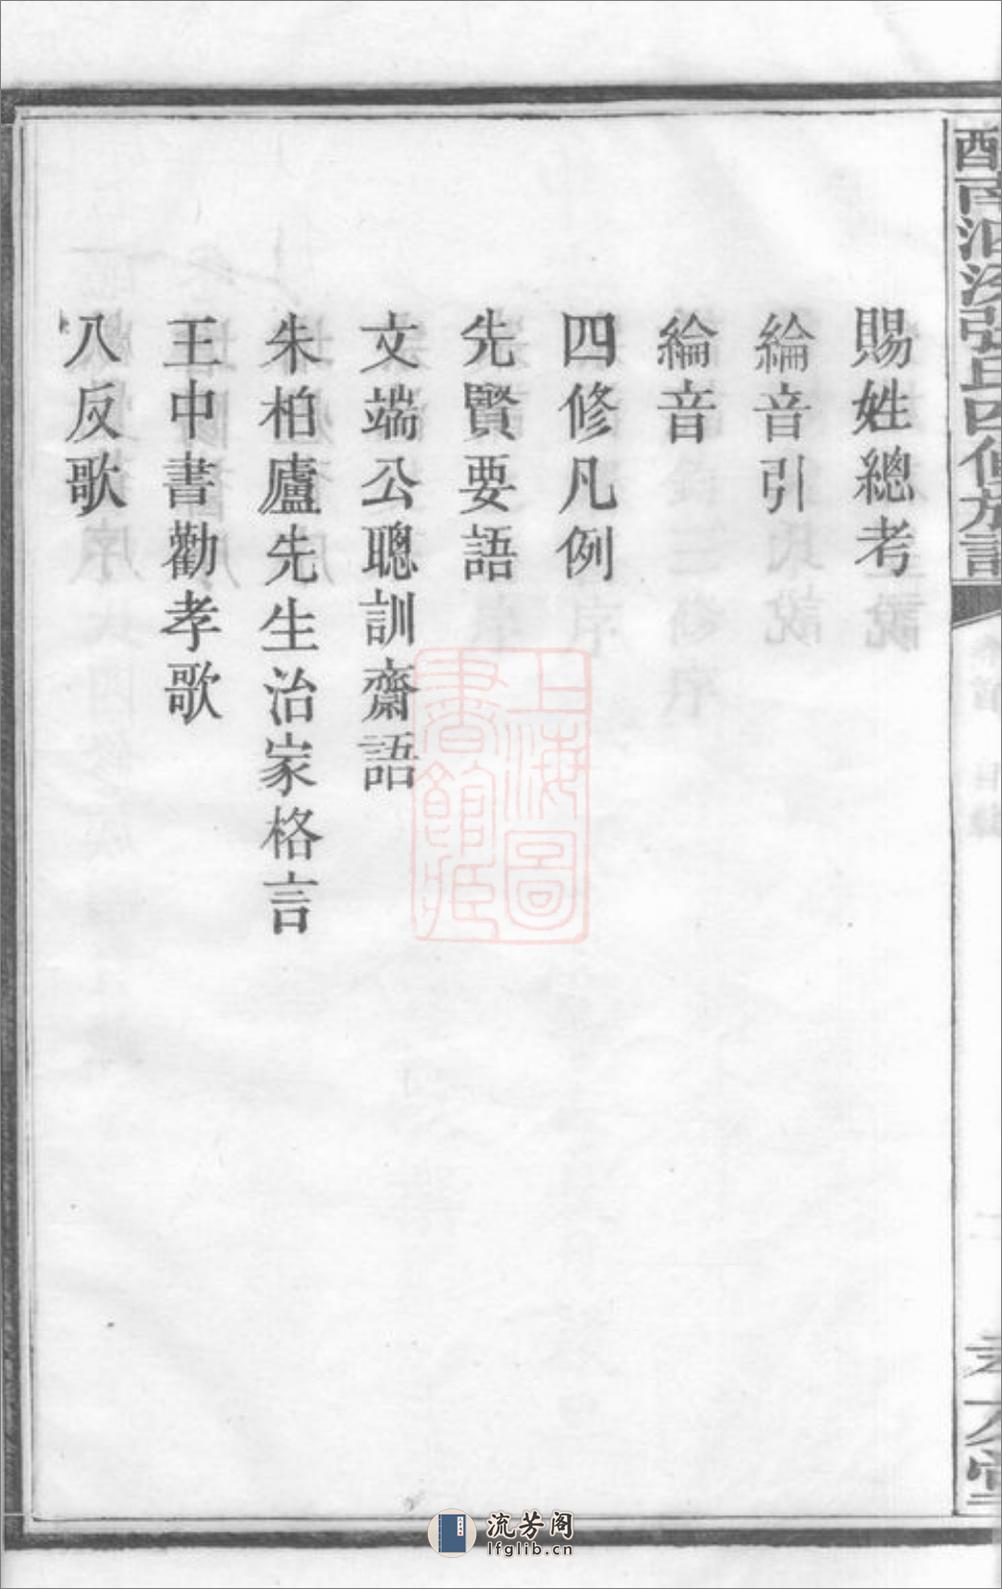 賜姓總考
綸音引
綸音
四修凡例
先賢要語
文端公聰訓齋語
朱柏廬先生治家格言
王中書勸孝歌
八反歌
上海圖
書館藏
流芳阁
lfglib.cn